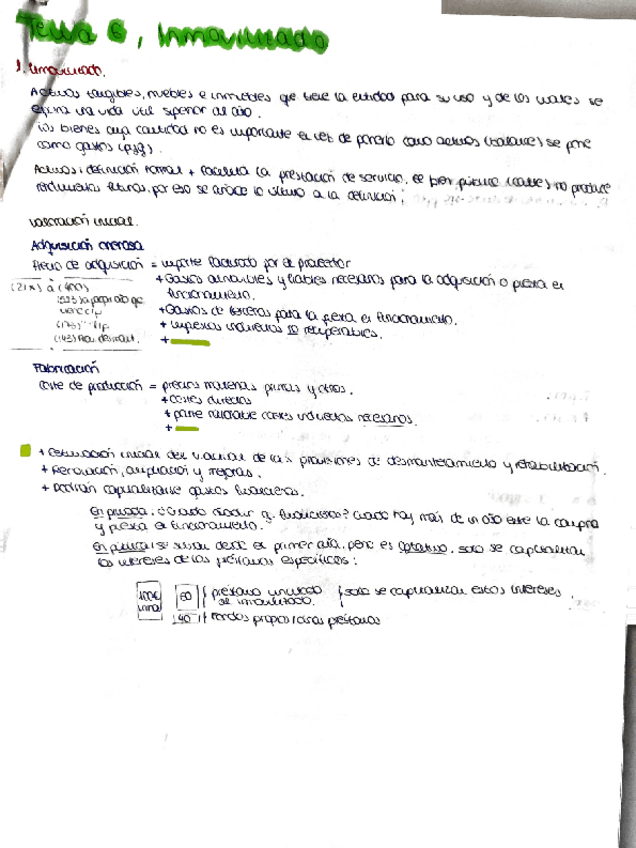 Tema 6, Inmovilizado
1. Inmovilizado.
Activos tangibles, muebles e inmuebles que tiene la entidad para su uso y de los cuales se
espera una vida útil superior al año.
los bienes cuya cantidad no es importante en vez de ponerlo como activos (balance) se pone
como gastos (pyg).
Activos: definición normal + Facilita la prestación de servicio. el bien público (calles) no produce
rendimientos futuros, por eso se añade lo último a la definición.
valoración inicial.
Adquisición onerosa
Precio de adquisición = importe facturado por el proveedor
+Gastos atribuibles y fiables necesarios para la adquisición o p. en
funcionamiento.
+Gastos de terceros para la p. en funcionamiento.
+ impuestos indirectos no recuperables.
+
(21x) a (400)
(523)
(173) " l/p
(143) Prov. desmant.
Fabricación
coste de producción = precios materias primas y otros.
+costes directos
+ parte razonable costes indirectos necesarios.
+
+ Estimación inicial del v. actual de las provisiones de desmantelamiento y rehabilitación.
+ Renovación, ampliación y mejoras.
+ Podrán capitalizarse gastos financieros.
En privada: ¿Cuándo añadir g. financieros? cuando hay más de un año entre la compra
y puesta en funcionamiento.
En pública: se suman desde el primer día, pero es optativo. solo se capitalizan
los intereses de los préstamos específicos:
100€
inmov
60 préstamo vinculado
al inmovilizado. solo se capitalizan estos intereses.
40 fondos propios/otros préstamos